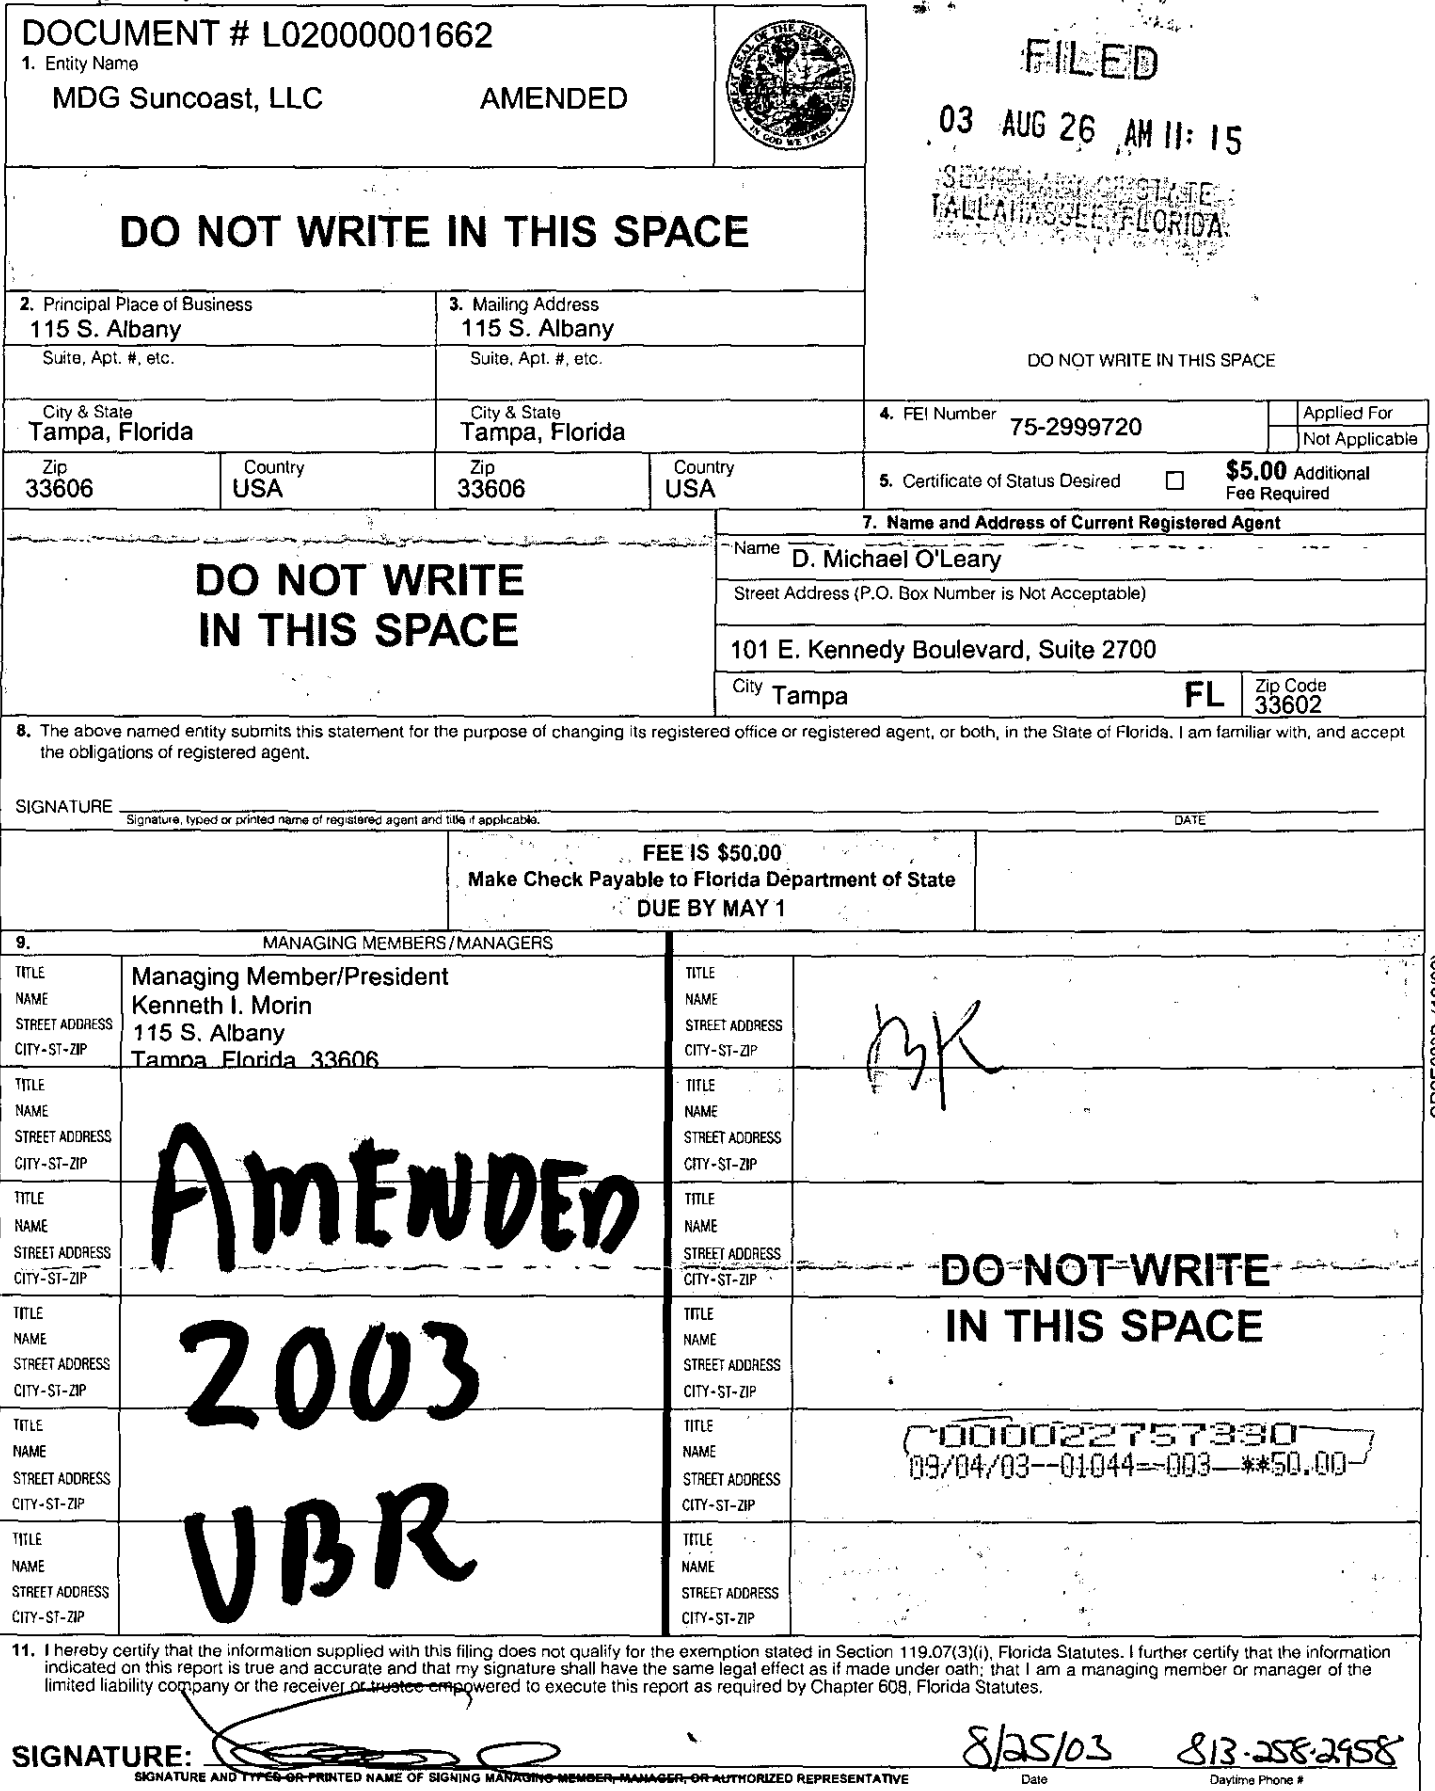 DOCUMENT # L02000001662
1. Entity Name
MDG Suncoast, LLC AMENDED
GREAT SEAL OF THE STATE OF FLORIDA
IN GOD WE TRUST
FILED
03 AUG 26 AM 11: 15
SECRETARY OF STATE
TALLAHASSEE, FLORIDA
DO NOT WRITE IN THIS SPACE
2. Principal Place of Business
115 S. Albany
3. Mailing Address
115 S. Albany
Suite, Apt. #, etc.
Suite, Apt. #, etc.
DO NOT WRITE IN THIS SPACE
City & State
Tampa, Florida
City & State
Tampa, Florida
4. FEI Number 75-2999720
Applied For
Not Applicable
Zip
33606
Country
USA
Zip
33606
Country
USA
5. Certificate of Status Desired
$5.00 Additional
Fee Required
DO NOT WRITE
IN THIS SPACE
7. Name and Address of Current Registered Agent
Name D. Michael O'Leary
Street Address (P.O. Box Number is Not Acceptable)
101 E. Kennedy Boulevard, Suite 2700
City Tampa FL
Zip Code
33602
8. The above named entity submits this statement for the purpose of changing its registered office or registered agent, or both, in the State of Florida. I am familiar with, and accept
the obligations of registered agent.
SIGNATURE
Signature, typed or printed name of registered agent and title if applicable.
DATE
FEE IS $50.00
Make Check Payable to Florida Department of State
DUE BY MAY 1
9. MANAGING MEMBERS/MANAGERS
TITLE Managing Member/President
NAME Kenneth I. Morin
STREET ADDRESS 115 S. Albany
CITY-ST-ZIP Tampa, Florida 33606
TITLE
NAME
STREET ADDRESS
CITY-ST-ZIP
BK
TITLE
NAME
STREET ADDRESS
CITY-ST-ZIP
AMENDED
TITLE
NAME
STREET ADDRESS
CITY-ST-ZIP
TITLE
NAME
STREET ADDRESS
CITY-ST-ZIP
TITLE
NAME
STREET ADDRESS
CITY-ST-ZIP
DO NOT WRITE
IN THIS SPACE
TITLE
NAME
STREET ADDRESS
CITY-ST-ZIP
2003
TITLE
NAME
STREET ADDRESS
CITY-ST-ZIP
TITLE
NAME
STREET ADDRESS
CITY-ST-ZIP
TITLE
NAME
STREET ADDRESS
CITY-ST-ZIP
000022757330
09/04/03--01044--003 **50.00
TITLE
NAME
STREET ADDRESS
CITY-ST-ZIP
UBR
TITLE
NAME
STREET ADDRESS
CITY-ST-ZIP
11. I hereby certify that the information supplied with this filing does not qualify for the exemption stated in Section 119.07(3)(i), Florida Statutes. I further certify that the information
indicated on this report is true and accurate and that my signature shall have the same legal effect as if made under oath; that I am a managing member or manager of the
limited liability company or the receiver or trustee empowered to execute this report as required by Chapter 608, Florida Statutes.
SIGNATURE: 8/25/03 813-258-2958
SIGNATURE AND TYPED OR PRINTED NAME OF SIGNING MANAGING MEMBER, MANAGER, OR AUTHORIZED REPRESENTATIVE
Date
Daytime Phone #